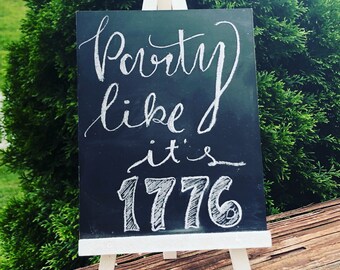 Party
like
it's
1776